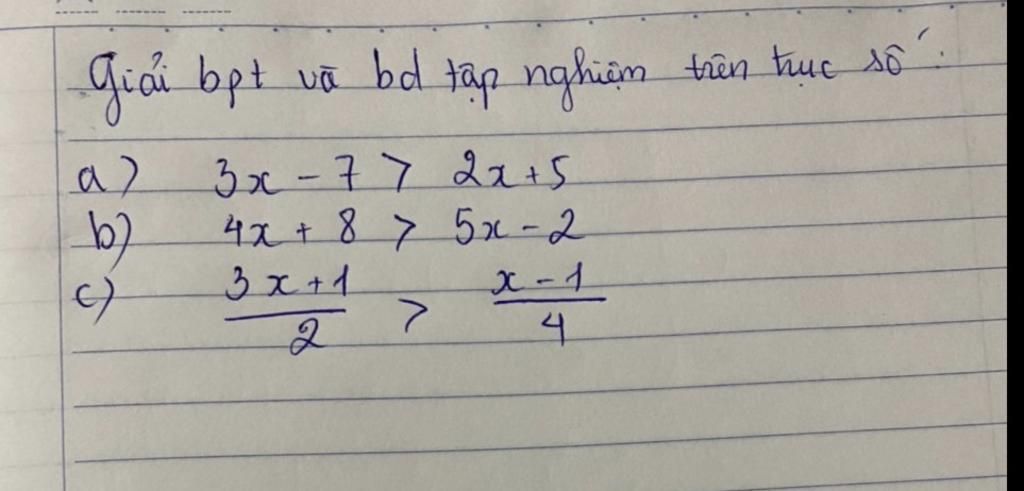 Giải bpt và bd tập nghiệm trên trục số :
a) 3x - 7 > 2x + 5
b) 4x + 8 > 5x - 2
c) \frac{3x+1}{2} > \frac{x-1}{4}